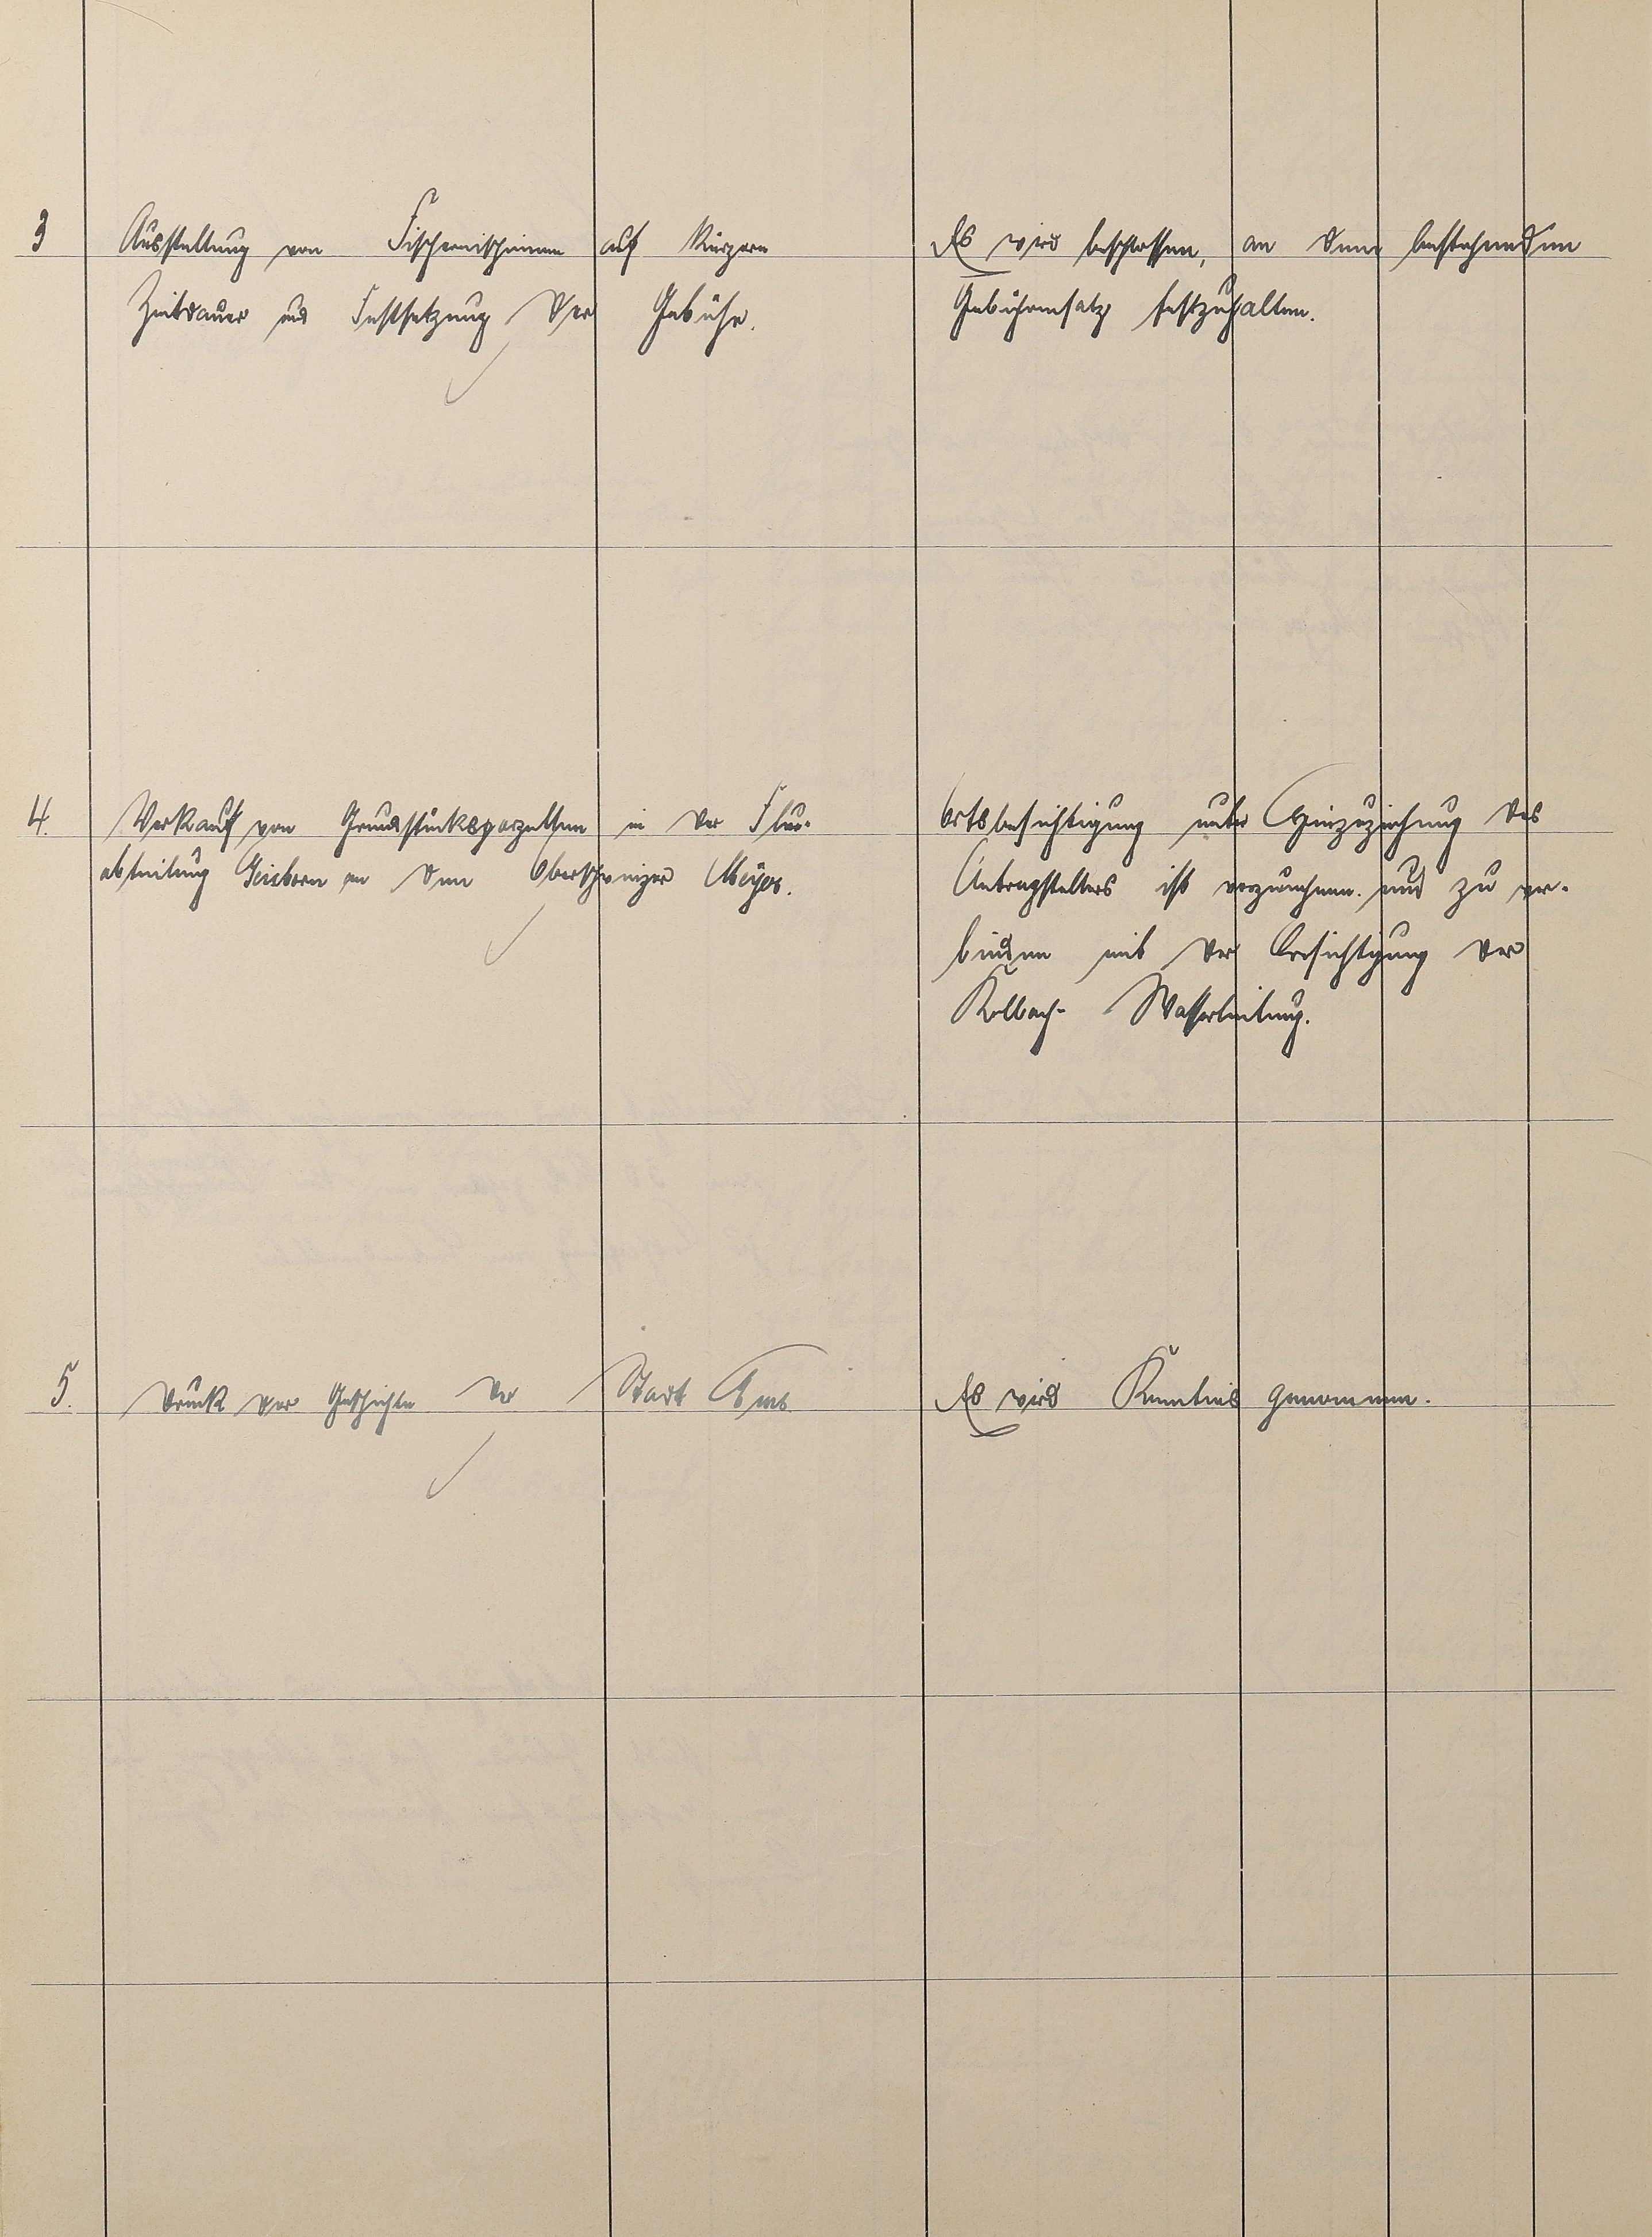 3
Ausstellung von Fischereischeinen auf kürzere
Zeitdauer und Festsetzung der Gebühr.
Es wird beschlossen, an dem bestehenden
Gebührensatz festzuhalten.
4.
Verkauf von Grundstücksparzellen in der Flur-
abteilung Geisborn an den Oberschweizer Meyer.
Ortsbesichtigung unter Hinzuziehung des
Antragstellers ist vorzunehmen und zu ver-
binden mit der Besichtigung der
Kolbach- Wasserleitung.
5.
Druck der Geschichte der Stadt Ems.
Es wird Kenntnis genommen.